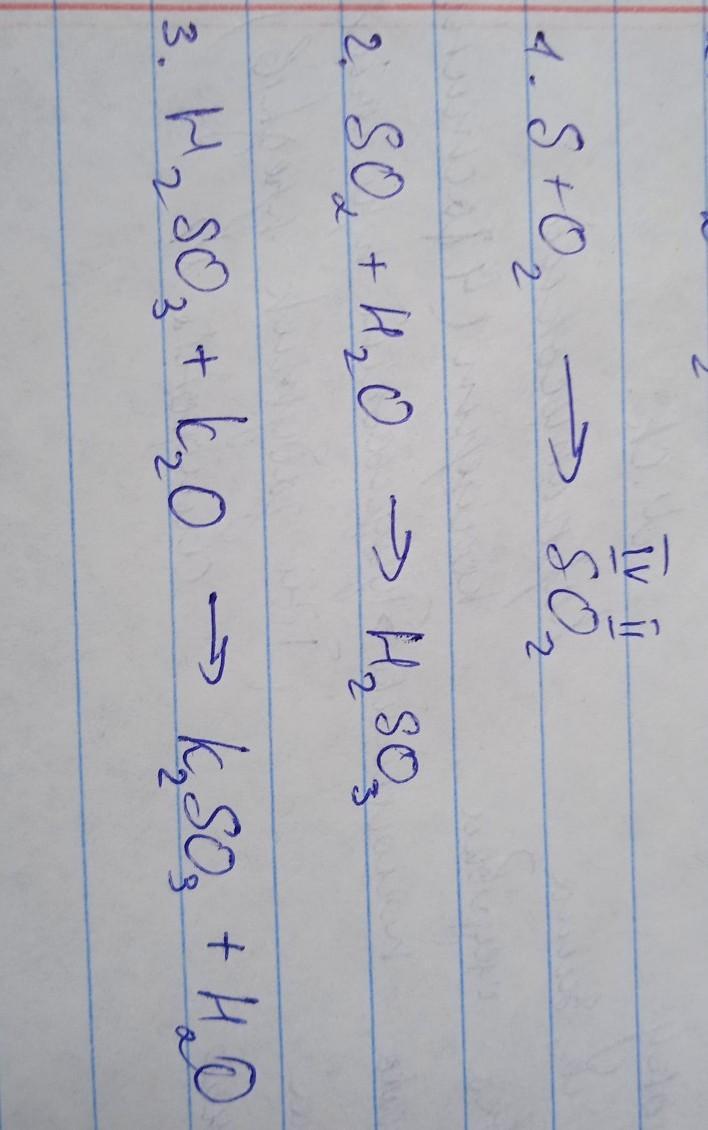 IV II
1. S + O₂ → SO₂
2. SO₂ + H₂O → H₂SO₃
3. H₂SO₃ + K₂O → K₂SO₃ + H₂O